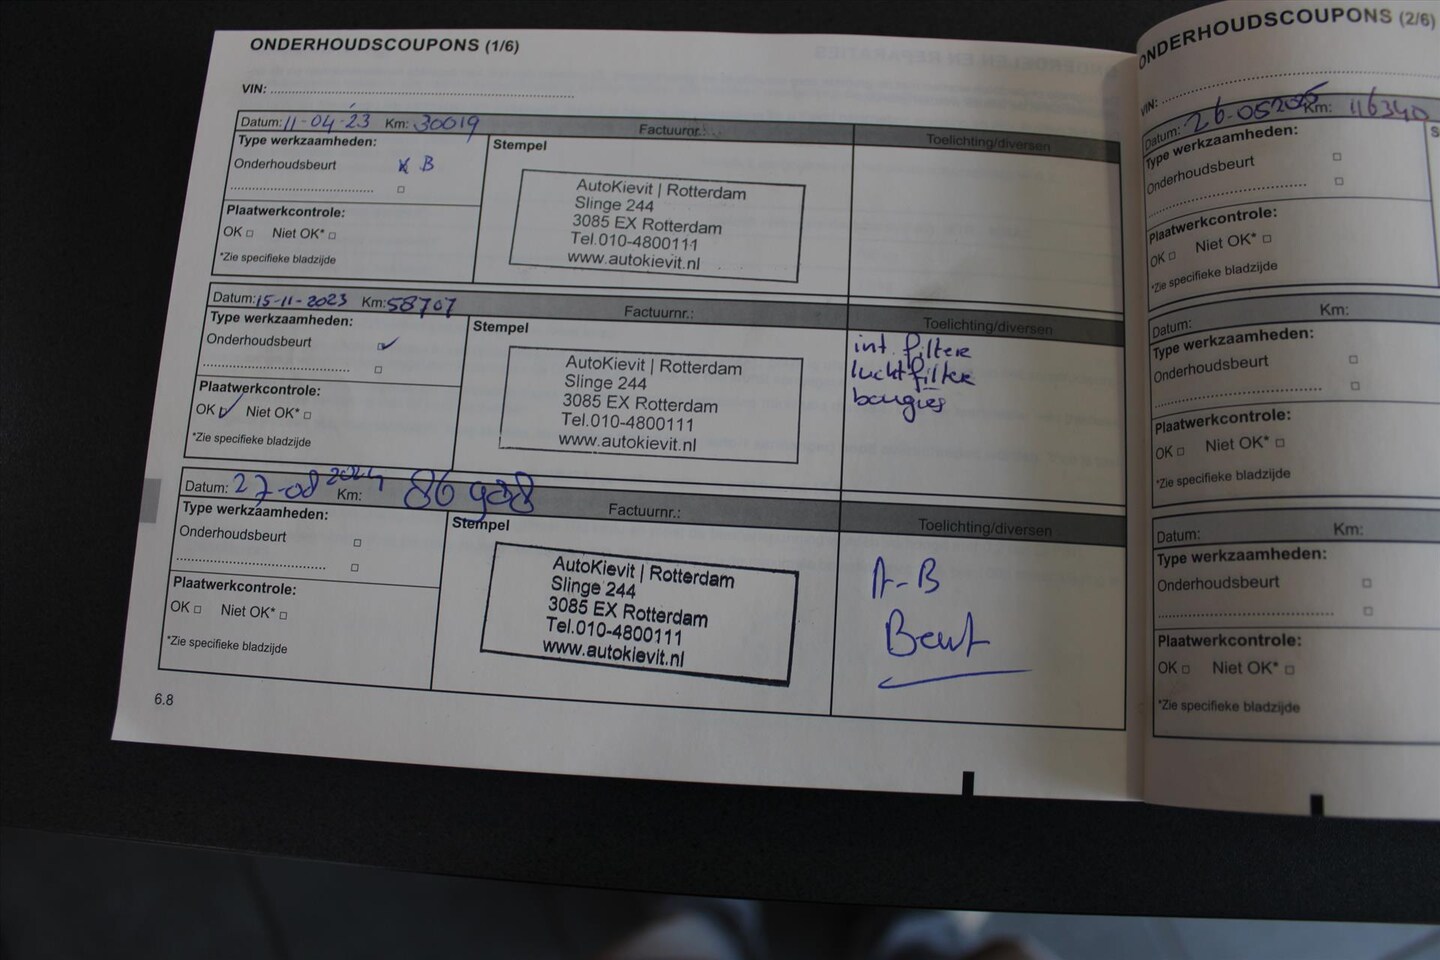 ONDERHOUDSCOUPONS (1/6)
VIN:
Datum: 11-04-'23 Km: 30019 Factuurnr.: Toelichting/diversen
Type werkzaamheden:
Onderhoudsbeurt x B
Stempel
AutoKievit | Rotterdam
Slinge 244
3085 EX Rotterdam
Tel.010-4800111
www.autokievit.nl
Plaatwerkcontrole:
OK □ Niet OK* □
*Zie specifieke bladzijde
Datum: 15-11-2023 Km: 58707 Factuurnr.: Toelichting/diversen
Type werkzaamheden:
Onderhoudsbeurt ✓
Stempel
AutoKievit | Rotterdam
Slinge 244
3085 EX Rotterdam
Tel.010-4800111
www.autokievit.nl
int. filter
luchtfilter
bougies
Plaatwerkcontrole:
OK ✓ Niet OK* □
*Zie specifieke bladzijde
Datum: 27-08 2024 Km: 86 908 Factuurnr.: Toelichting/diversen
Type werkzaamheden:
Onderhoudsbeurt □
Stempel
AutoKievit | Rotterdam
Slinge 244
3085 EX Rotterdam
Tel.010-4800111
www.autokievit.nl
A-B
Beurt
Plaatwerkcontrole:
OK □ Niet OK* □
*Zie specifieke bladzijde
6.8
ONDERHOUDSCOUPONS (2/6)
VIN:
Datum: 26-05 2025 Km: 116340
Type werkzaamheden:
Onderhoudsbeurt □
Plaatwerkcontrole:
OK □ Niet OK* □
*Zie specifieke bladzijde
Datum: Km:
Type werkzaamheden:
Onderhoudsbeurt □
Plaatwerkcontrole:
OK □ Niet OK* □
*Zie specifieke bladzijde
Datum: Km:
Type werkzaamheden:
Onderhoudsbeurt □
Plaatwerkcontrole:
OK □ Niet OK* □
*Zie specifieke bladzijde